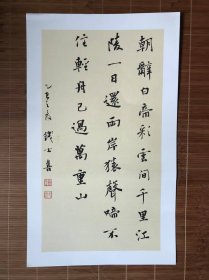 朝辭白帝彩雲間千里江
陵一日還兩岸猿聲啼不
住輕舟已過萬重山